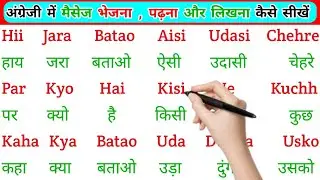 अंग्रेजी में मैसेज भेजना , पढ़ना और लिखना कैसे सीखें
Hii Jara Batao Aisi Udasi Chehre
हाय जरा बताओ ऐसी उदासी चेहरे
Par Kyo Hai Kisi Ne Kuchh
पर क्यो है किसी कुछ
Kaha Kya Batao Uda Usko
कहा क्या बताओ उड़ा दुंगा उसको